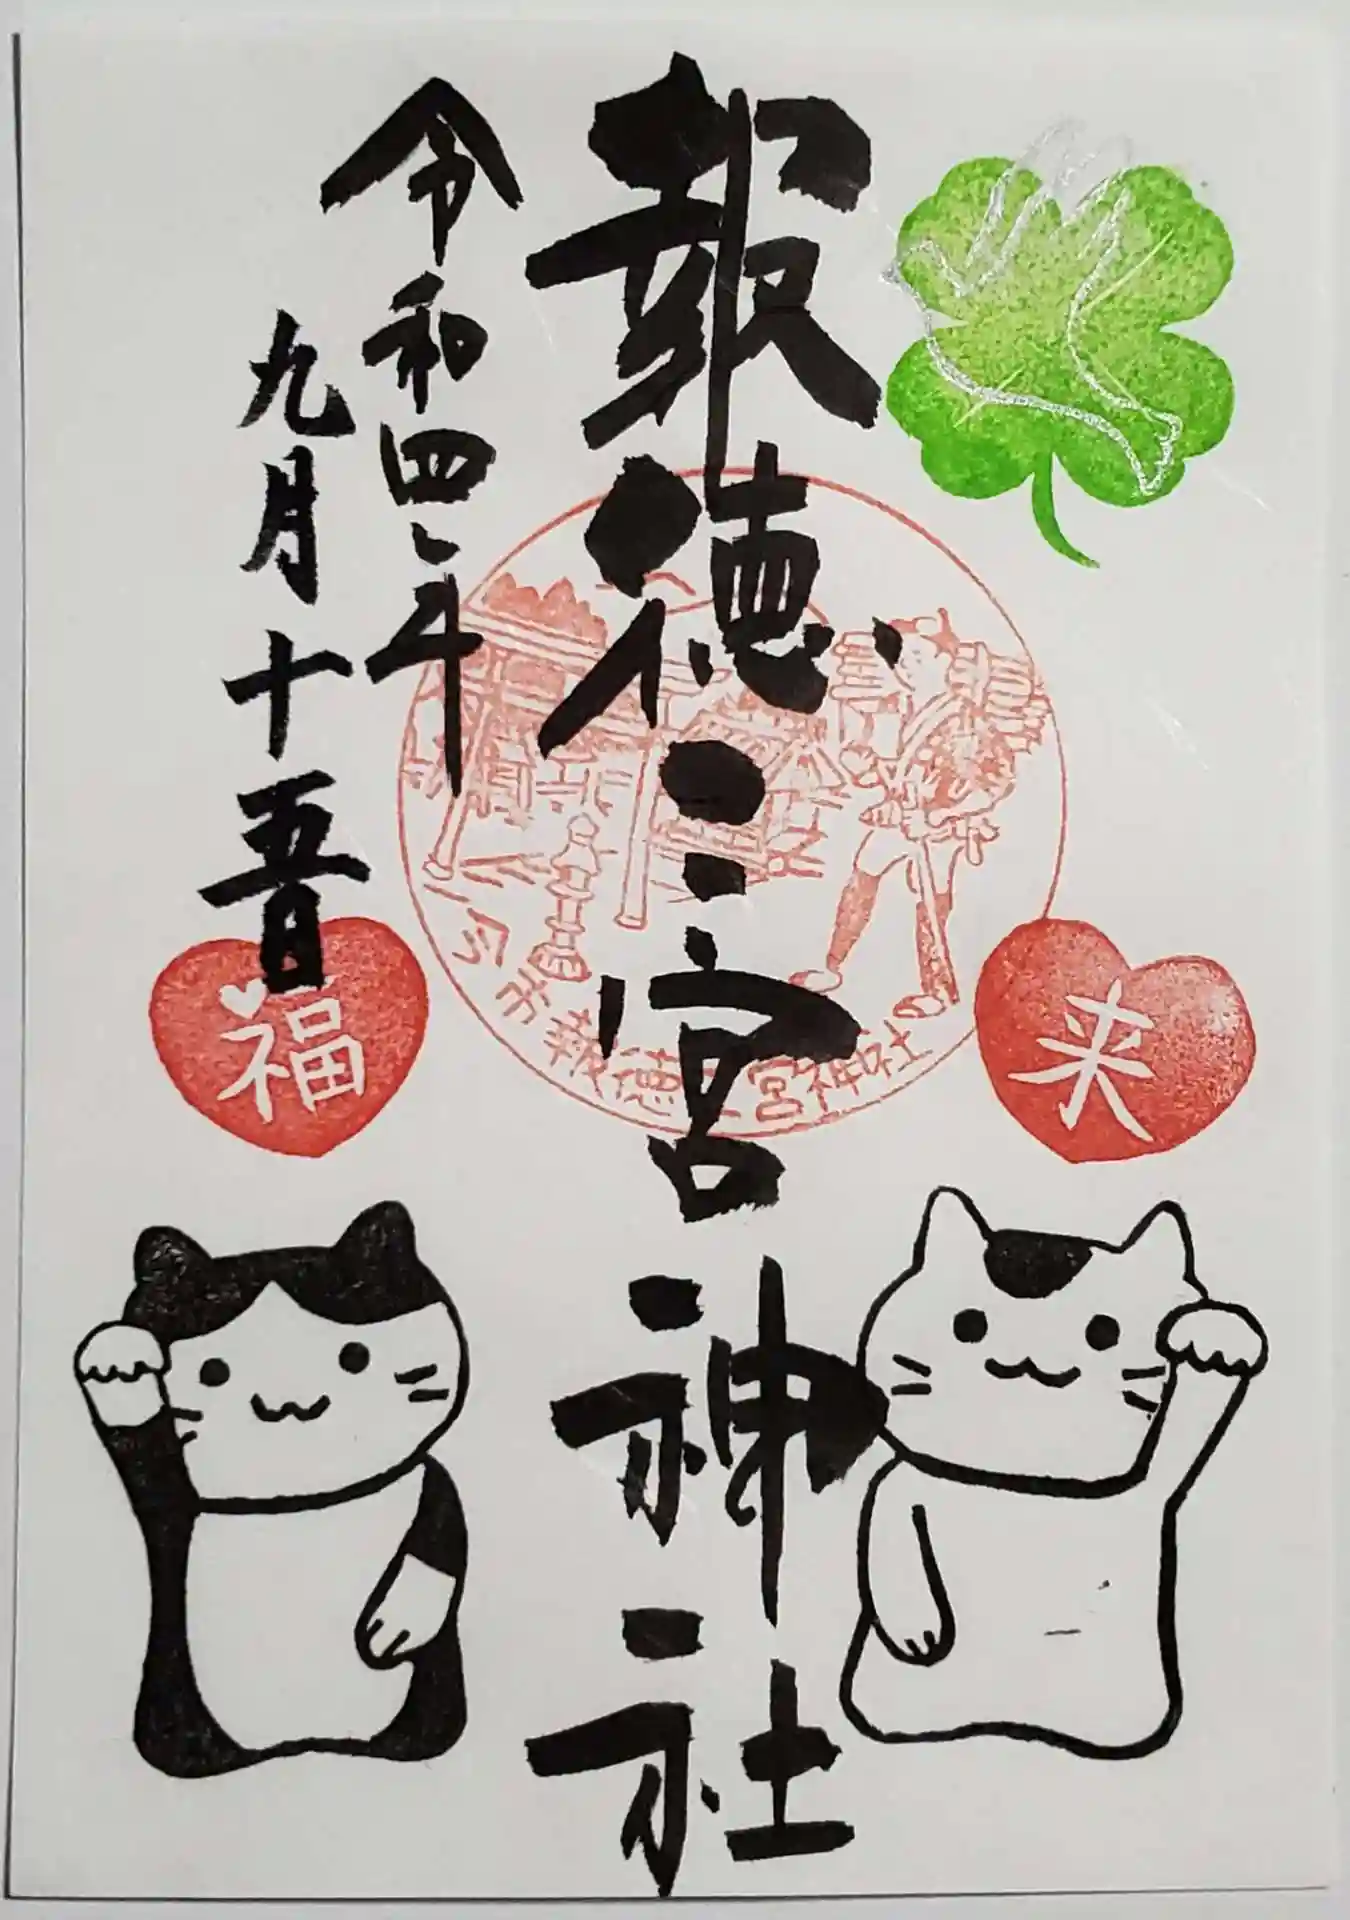 報徳二宮神社
令和四年
九月十五日
来
福
報徳二宮神社